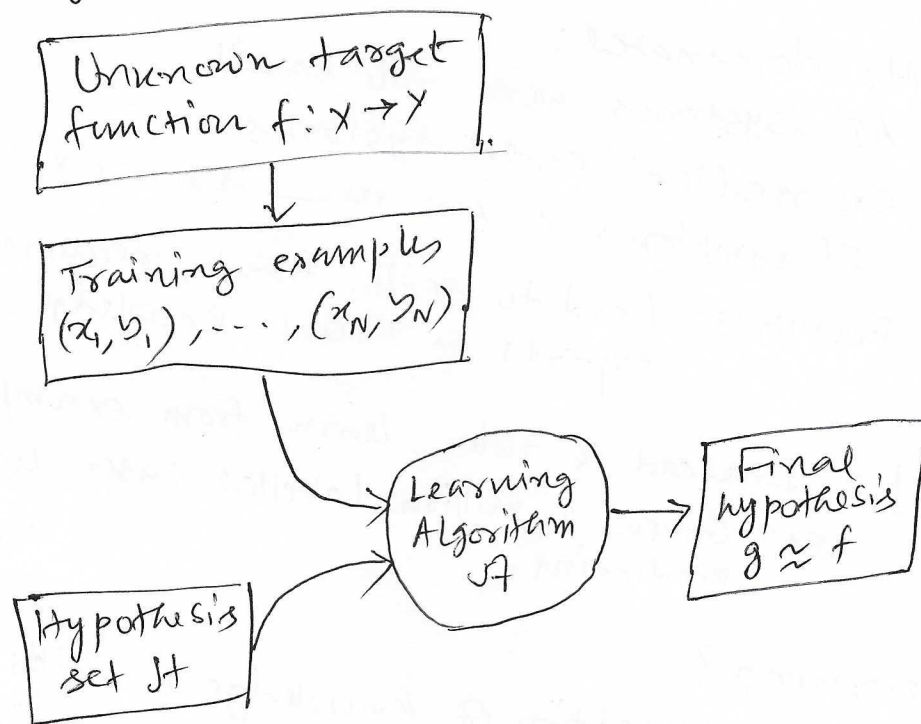 Unknown target
function f: X → Y
Training examples
(x₁, y₁), ...., (x_N, y_N)
Learning
Algorithm
𝒜
Final
hypothesis
g ≈ f
Hypothesis
set ℋ